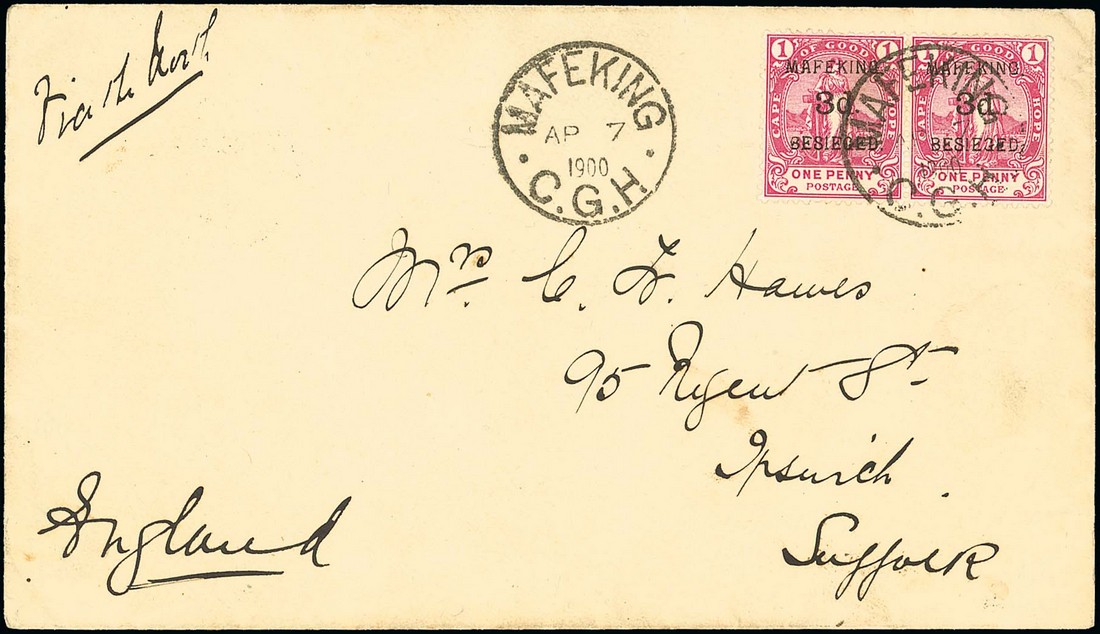 Via the North
MAFEKING
AP 7
1900
C.G.H.
1 OF GOOD 1
CAPE HOPE
MAFEKING
3d
BESIEGED.
ONE PENNY
POSTAGE
1 OF GOOD 1
CAPE HOPE
MAFEKING
3d
BESIEGED.
ONE PENNY
POSTAGE
MAFEKING
1900
C.G.H.
Mrs C. F. Hawes
95 Regent St
Ipswich
Suffolk
England